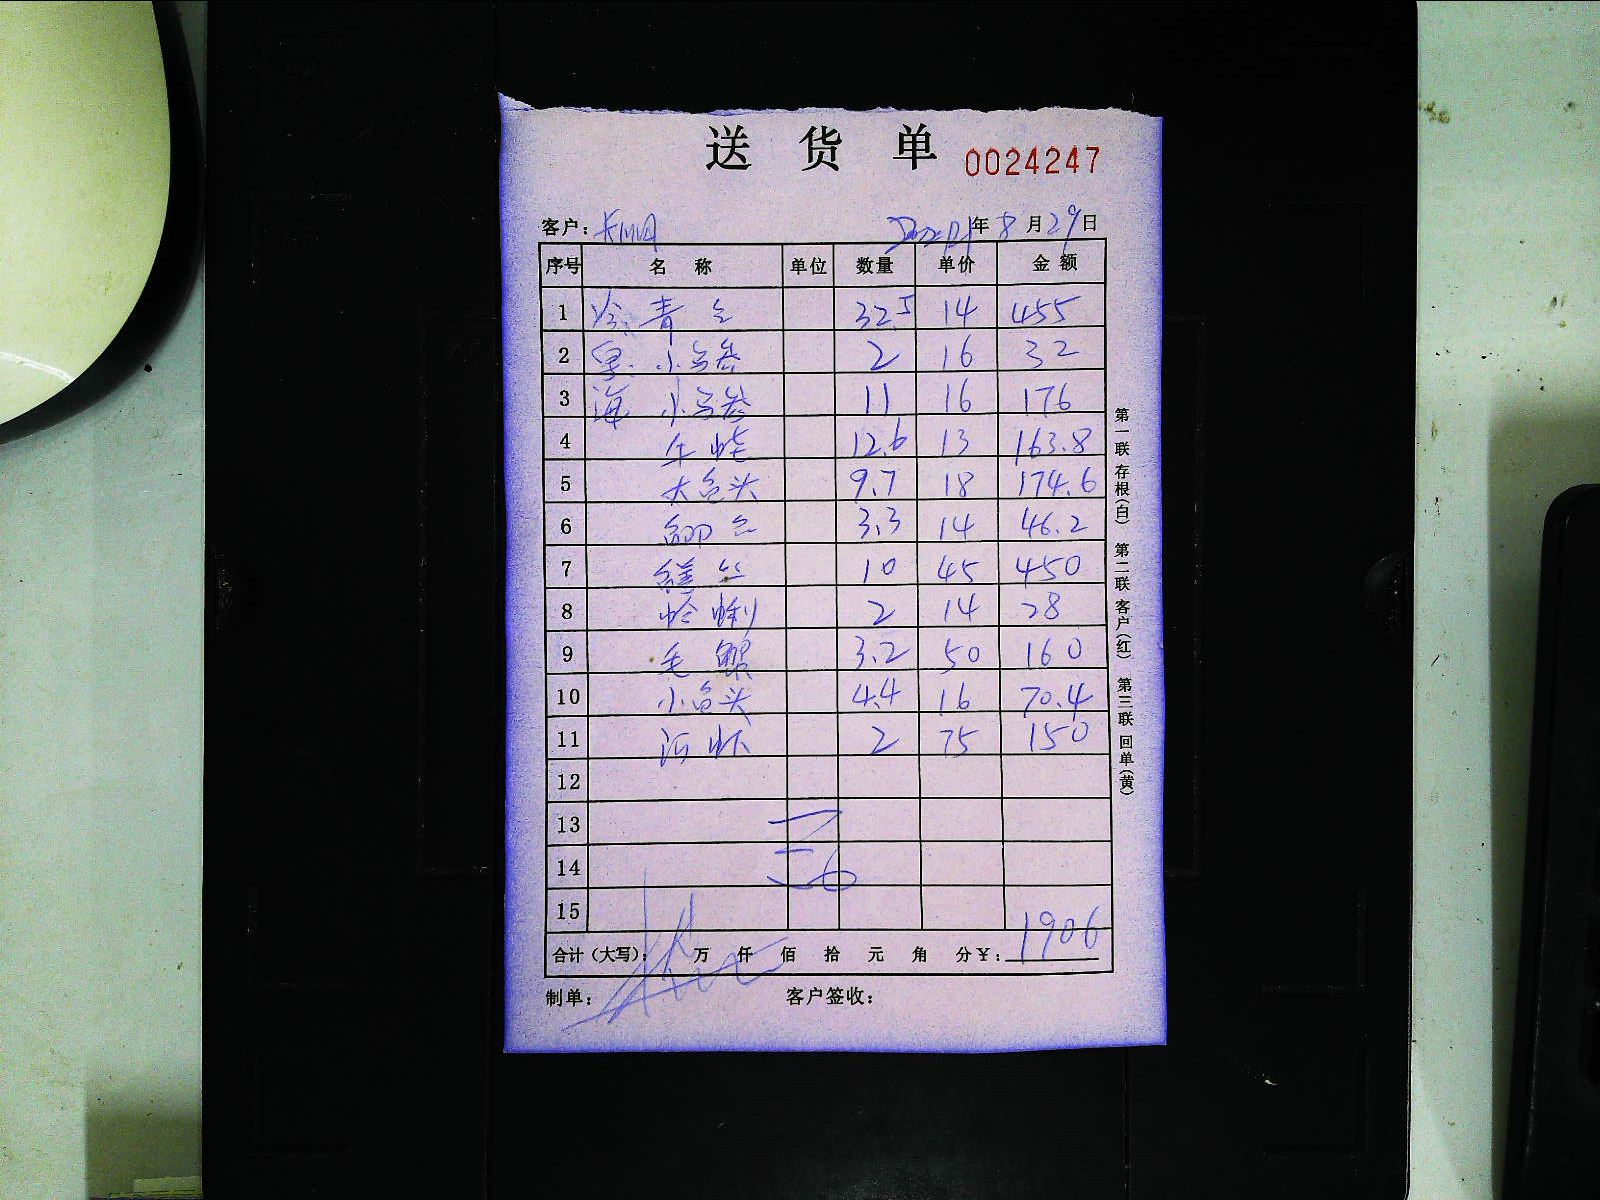 送 货 单 0024247
客户: 年 8 月 29 日
序号 名 称 单位 数量 单价 金 额
1 冷 青 32.5 14 455
2 小 2 16 32
3 海 小 11 16 176
4 牛 12.6 13 163.8
5 大鱼头 9.7 18 174.6
6 鲫 3.3 14 46.2
7 10 45 450
8 蛤蜊 2 14 28
9 毛蟹 3.2 50 160
10 小鱼头 4.4 16 70.4
11 河虾 2 75 150
12
13
14
15
合计(大写): 万 仟 佰 拾 元 角 分 ¥: 1906
制单: 客户签收:
第一联 存根(白) 第二联 客户(红) 第三联 回单(黄)